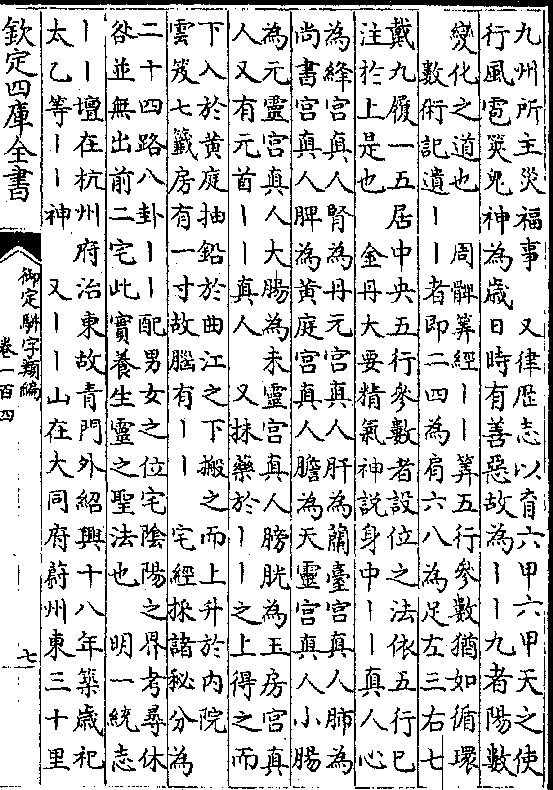 九州所主災福事　又律歴志以育六甲六甲天之使
行風雹筴鬼神為歲日時有善惡故為丨丨九者陽數
變化之道也　周髀筭經丨丨筭五行參數猶如循環
數術記遺丨丨者即二四為肩六八為足左三右七
戴九履一五居中央五行參數者設位之法依五行已
注於上是也　金丹大要精氣神説身中丨丨真人心
為絳宮真人腎為丹元宮真人肝為蘭臺宮真人肺為
尚書宮真人脾為黄庭宮真人膽為天靈宮真人小腸
為元靈宮真人大腸為未靈宮真人膀胱為玉房宮真
人又有元首丨丨真人　又抹藥於丨丨之上得之而
下入於黄庭抽鉛於曲江之下搬之而上升於内院
雲笈七籤房有一寸故腦有丨丨　宅經採諸秘分為
二十四路八卦丨丨配男女之位宅陰陽之界考尋休
咎並無出前二宅此實養生靈之聖法也　明一統志
丨丨壇在杭州府治東故青門外紹興十八年築歲祀
太乙等丨丨神　又丨丨山在大同府蔚州東三十里
欽定四庫全書
御定駢字類編
卷一百四
七